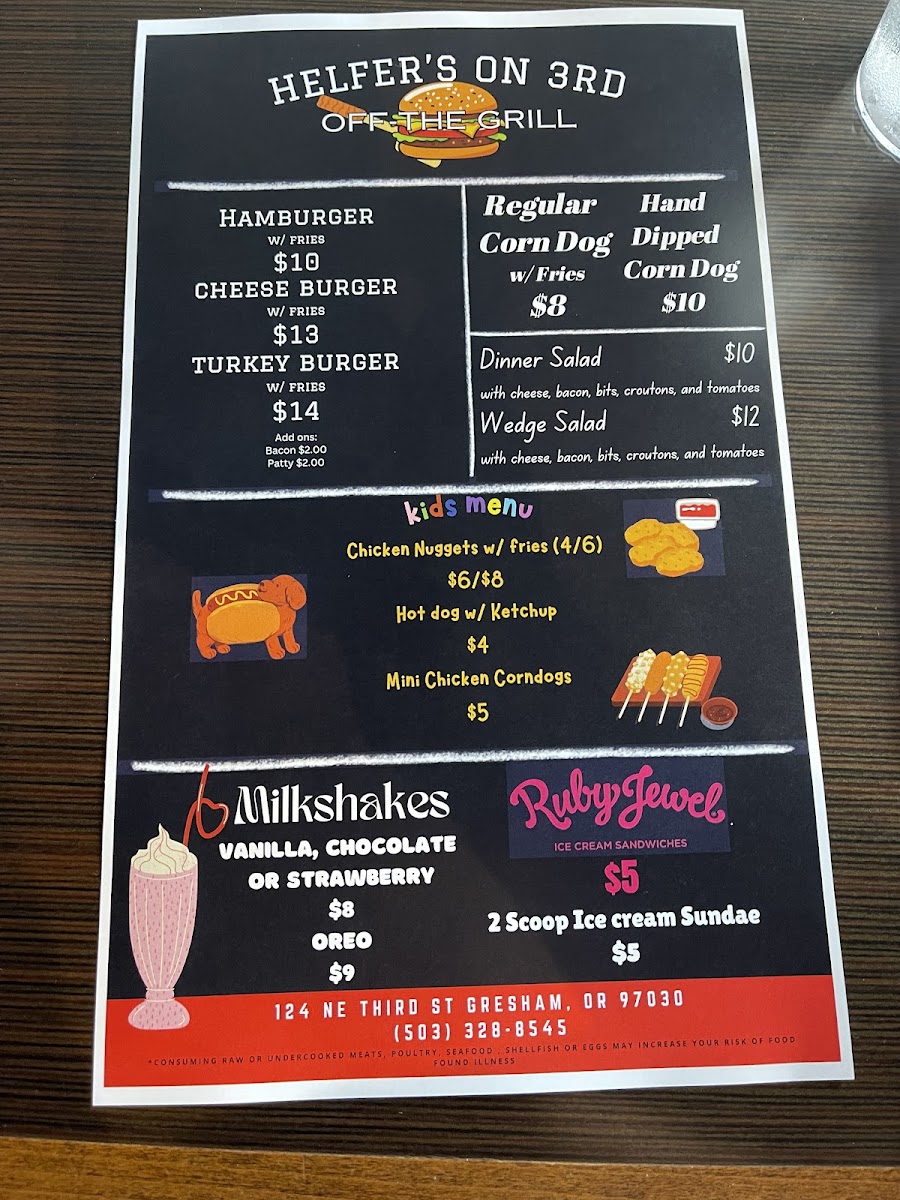 HELFER'S ON 3RD
OFF-THE GRILL
HAMBURGER
W/ FRIES
$10
CHEESE BURGER
W/ FRIES
$13
TURKEY BURGER
W/ FRIES
$14
Add ons:
Bacon $2.00
Patty $2.00
Regular
Corn Dog
w/Fries
$8
Hand
Dipped
Corn Dog
$10
Dinner Salad $10
with cheese, bacon, bits, croutons, and tomatoes
Wedge Salad $12
with cheese, bacon, bits, croutons, and tomatoes
kids menu
Chicken Nuggets w/ fries (4/6)
$6/$8
Hot dog w/ Ketchup
$4
Mini Chicken Corndogs
$5
Milkshakes
VANILLA, CHOCOLATE
OR STRAWBERRY
$8
OREO
$9
Ruby Jewel
ICE CREAM SANDWICHES
$5
2 Scoop Ice cream Sundae
$5
124 NE THIRD ST GRESHAM, OR 97030
(503) 328-8545
*CONSUMING RAW OR UNDERCOOKED MEATS, POULTRY, SEAFOOD , SHELLFISH OR EGGS MAY INCREASE YOUR RISK OF FOOD
FOUND ILLNESS